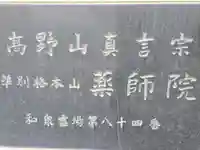 高野山真言宗
準別格本山 薬師院
和泉霊場第八十四番